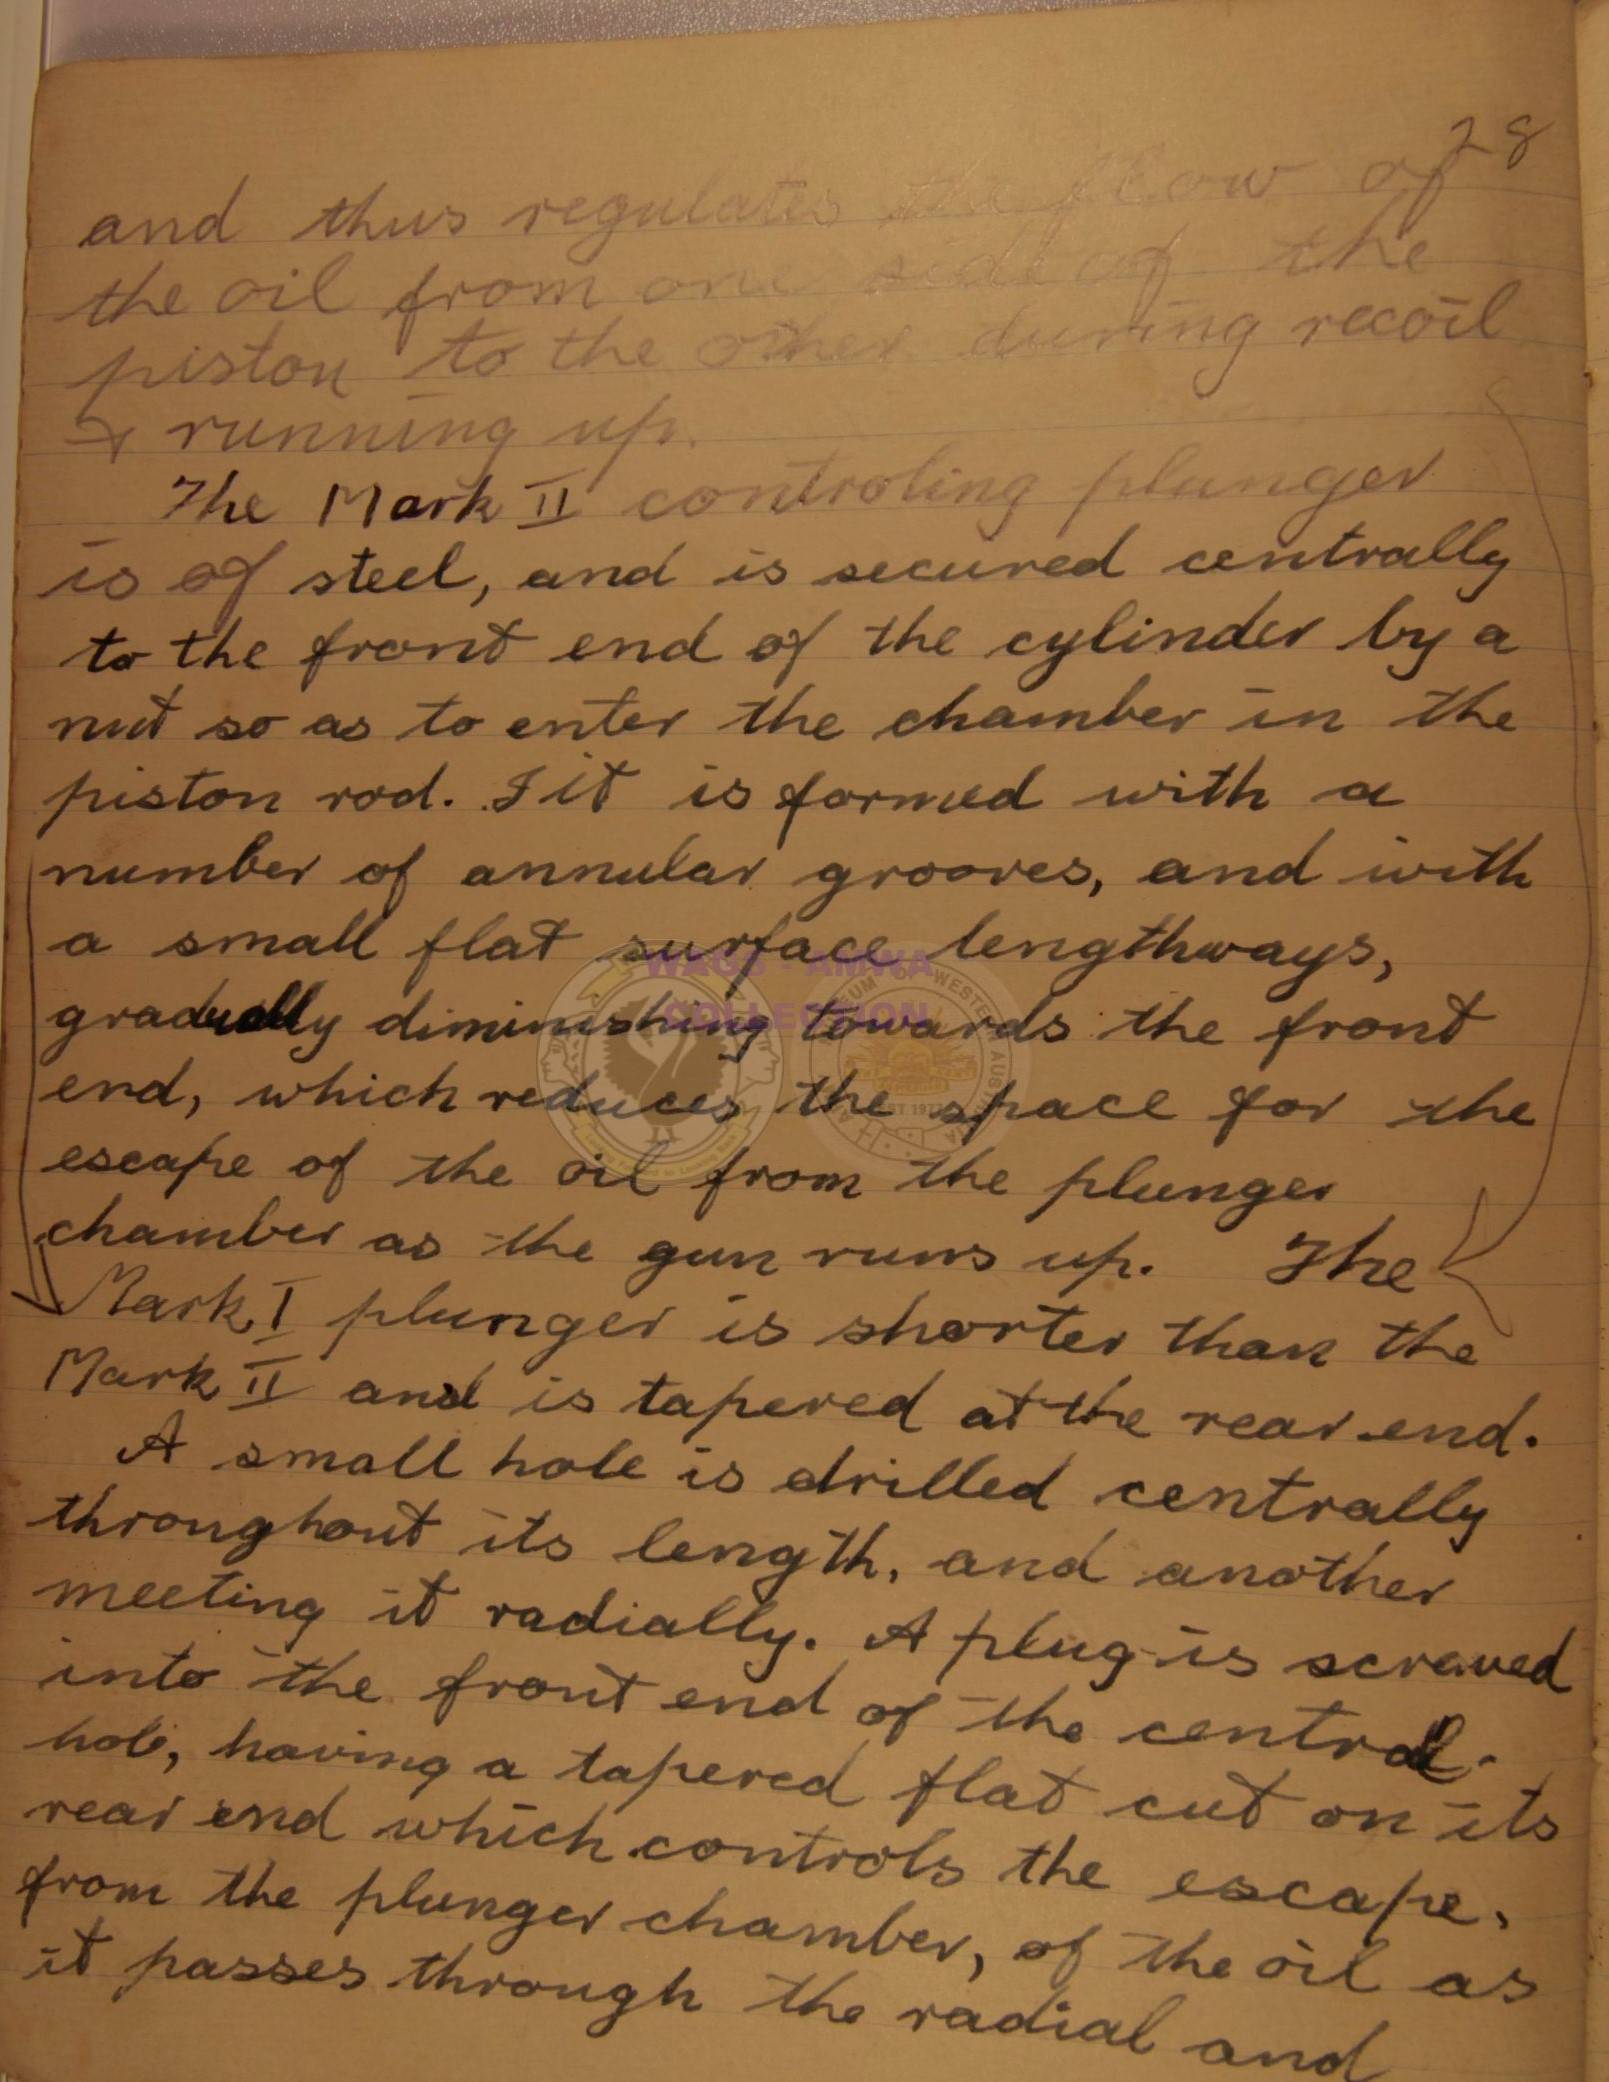 28
and thus regulates the flow of
the oil from one side of the
piston to the other during recoil
& running up.
The Mark II controling plunger
is of steel, and is secured centrally
to the front end of the cylinder by a
nut so as to enter the chamber in the
piston rod. I it is formed with a
number of annular grooves, and with
a small flat surface lengthways,
gradually diminishing towards the front
end, which reduces the space for the
escape of the oil from the plunger
chamber as the gun runs up. The
Mark I plunger is shorter than the
Mark II and is tapered at the rear end.
A small hole is drilled centrally
throughout its length, and another
meeting it radially. A plug is screwed
into the front end of the central
hole, having a tapered flat cut on its
rear end which controls the escape,
from the plunger chamber, of the oil as
it passes through the radial and
WAGS - AMWA
COLLECTION